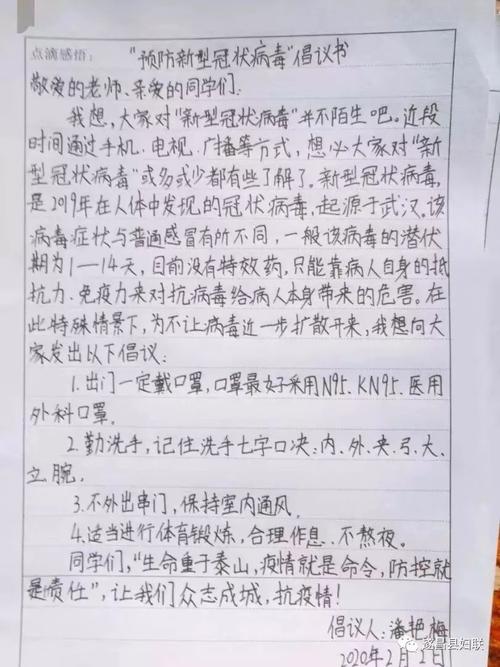 点滴感悟:
"预防新型冠状病毒"倡议书
敬爱的老师、亲爱的同学们:
我想,大家对"新型冠状病毒"并不陌生吧。近段
时间通过手机、电视、广播等方式,想必大家对"新
型冠状病毒"或多或少都有些了解了。新型冠状病毒,
是2019年在人体中发现的冠状病毒,起源于武汉。该
病毒症状与普通感冒有所不同,一般该病毒的潜伏
期为1—14天,目前没有特效药,只能靠病人自身的抵
抗力、免疫力来对抗病毒给病人本身带来的危害。在
此特殊情景下,为不让病毒近一步扩散开来,我想向大
家发出以下倡议:
1.出门一定戴口罩,口罩最好采用N95、KN95、医用
外科口罩。
2.勤洗手,记住洗手七字口决:内、外、夹、弓、大、
立、腕。
3.不外出串门,保持室内通风。
4.适当进行体育锻炼,合理作息、不熬夜。
同学们,"生命重于泰山,疫情就是命令,防控就
是责任",让我们众志成城,抗疫情!
倡议人:潘艳梅
2020年2月 日
遂昌县妇联